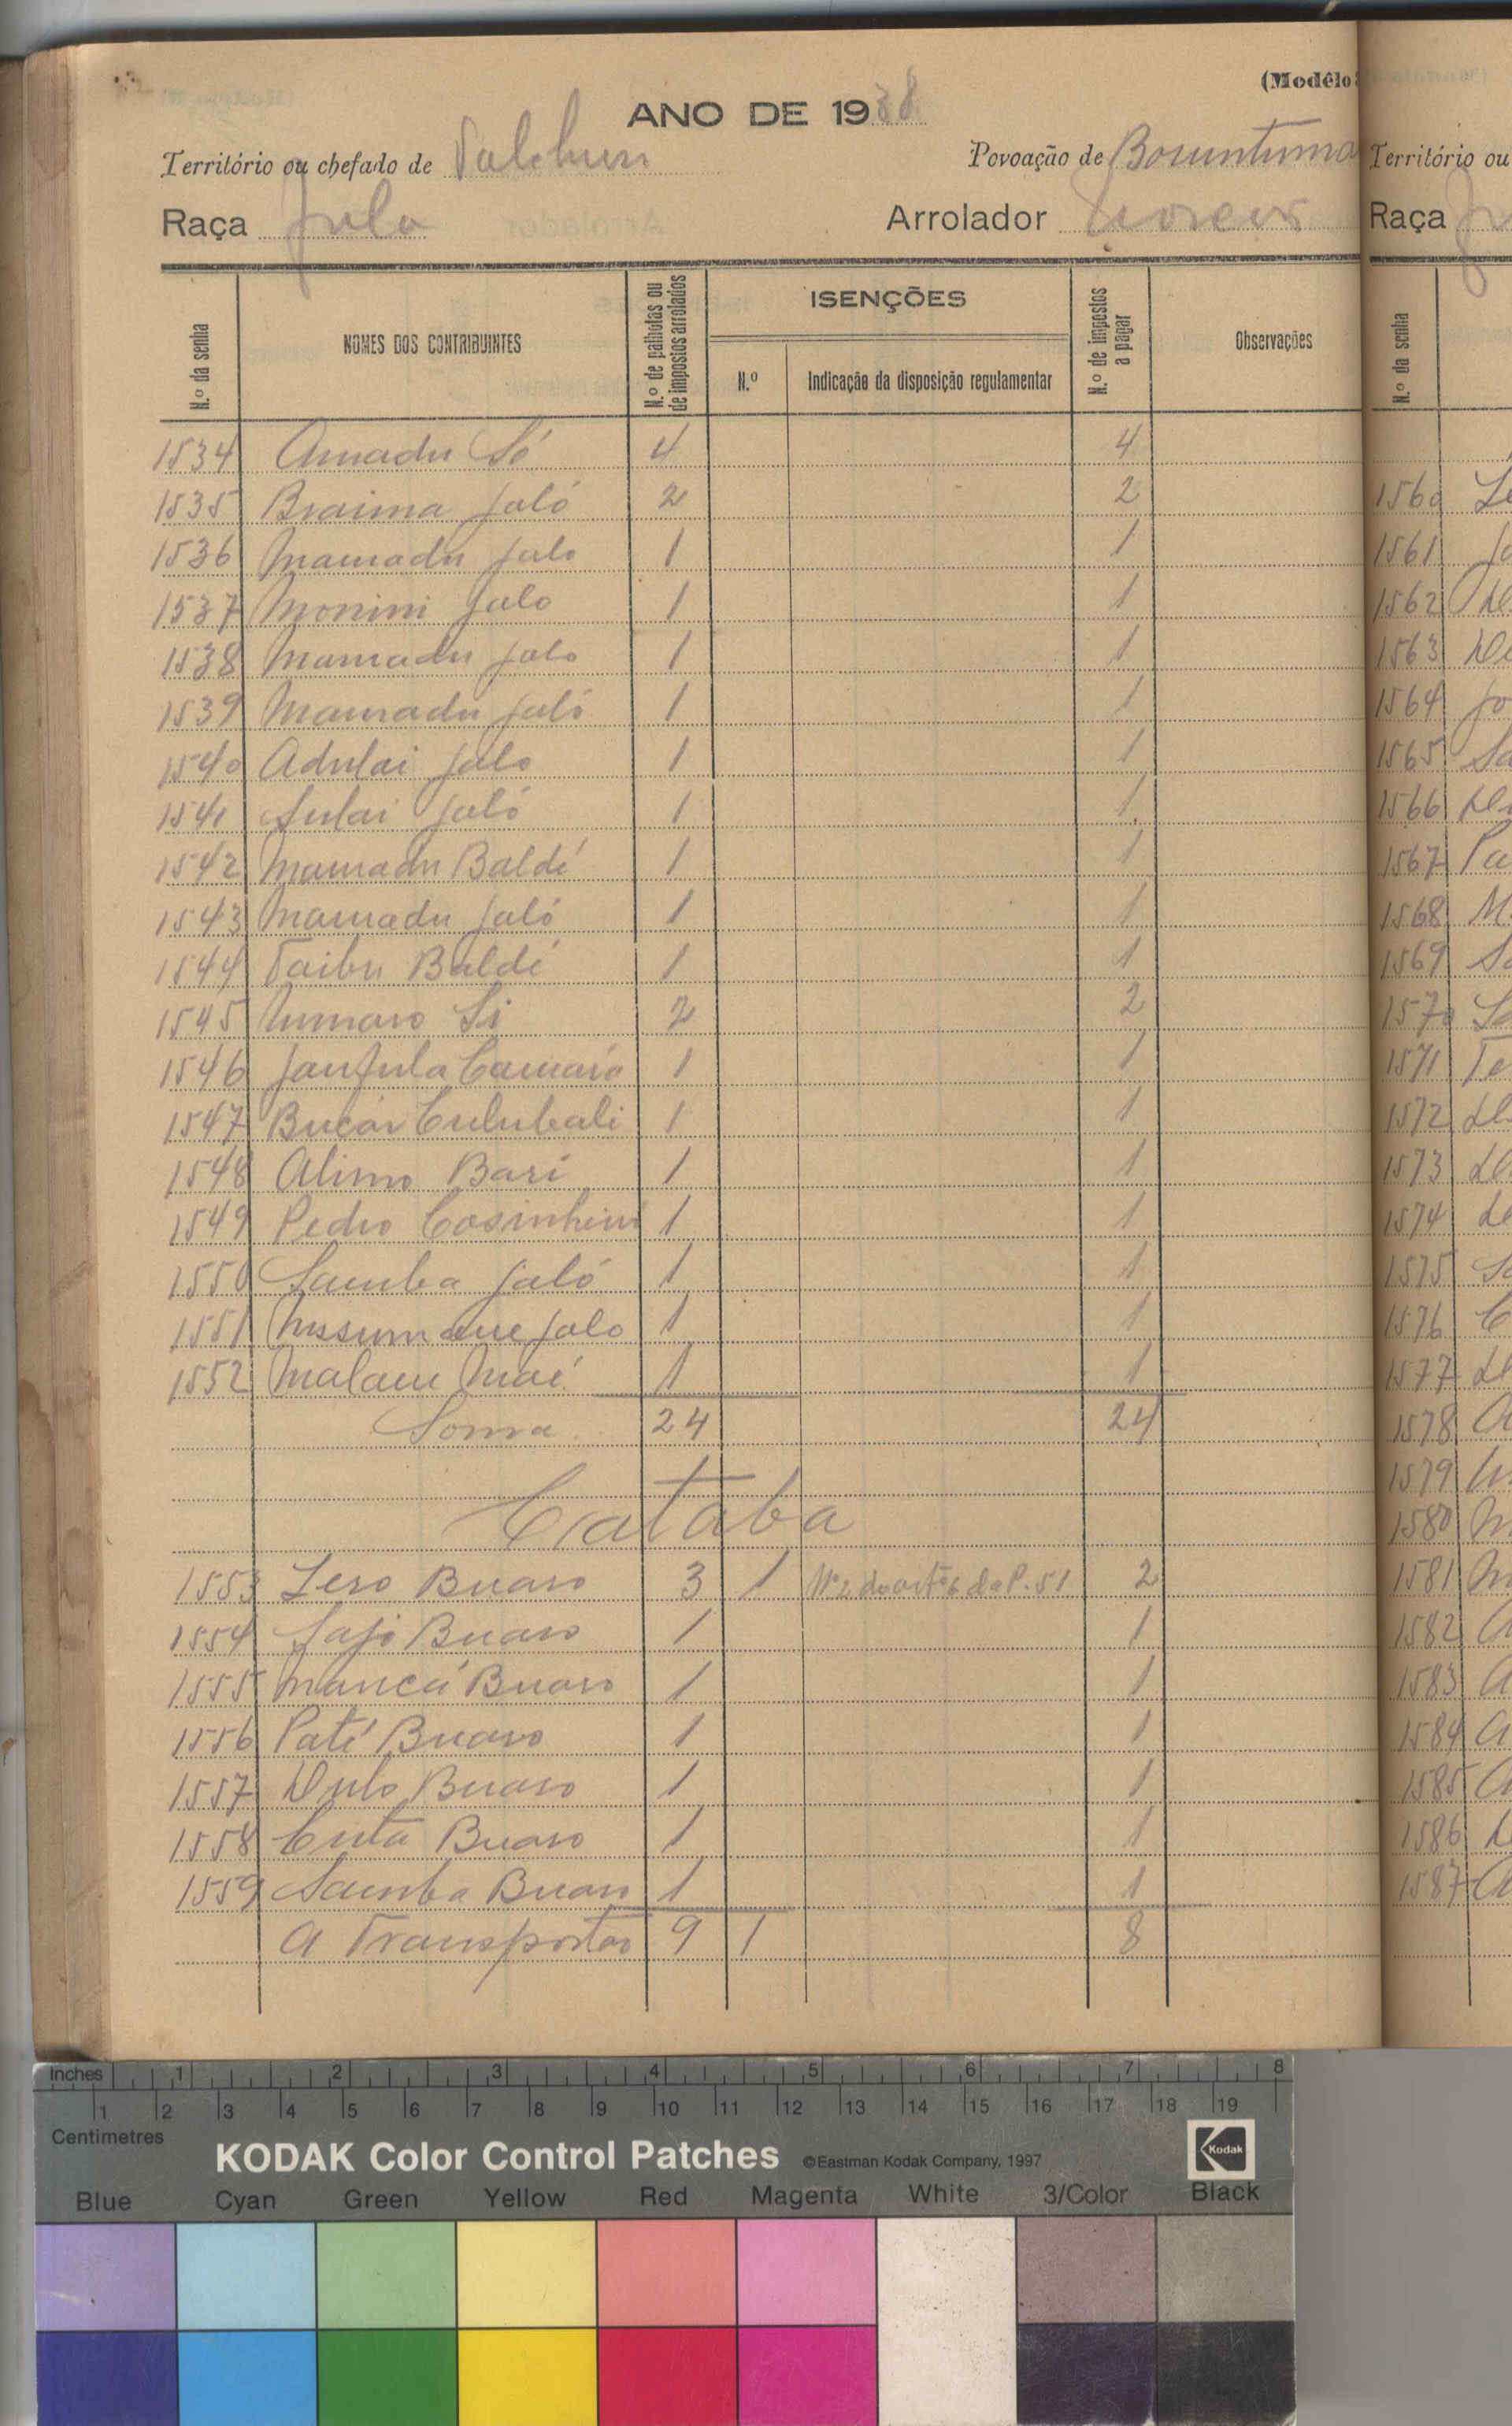 (Modêlo
ANO DE 1938
Território ou chefado de
Povoação de Boruntuma
Raça Fula
Arrolador
N.º da senha
NOMES DOS CONTRIBUINTES
N.º de palhotas ou de impostos arrolados
ISENÇÕES
N.º
Indicação da disposição regulamentar
N.º de impostos a pagar
Observações
1534 Amadu Só 4 4
1535 Braima Jaló 2 2
1536 Mamadu Jalo 1 1
1537 Monini Jalo 1 1
1538 Mamadu Jalo 1 1
1539 Mamadu Jaló 1 1
1540 Adulai Jalo 1 1
1541 Sulai Jaló 1 1
1542 Mamadu Baldé 1 1
1543 Mamadu Jaló 1 1
1544 Taibu Baldé 1 1
1545 Umaro Si 2 2
1546 Janfula Camará 1 1
1547 Bucar Culubali 1 1
1548 Alimo Bari 1 1
1549 Pedro Cosinheiro 1 1
1550 Samba Jaló 1 1
1551 Ussumane Jalo 1 1
1552 Malam Mané 1 1
Soma 24 24
Cataba
1553 Lero Buaro 3 1 Nº 2 do artº 6 da P. 51 2
1554 Jajo Buaro 1 1
1555 Mancá Buaro 1 1
1556 Paté Buaro 1 1
1557 Dulo Buaro 1 1
1558 Cuta Buaro 1 1
1559 Samba Buaro 1 1
A Transportar 9 1 8
Território ou
Raça
N.º da senha
1560
1561
1562
1563
1564
1565
1566
1567
1568
1569
1570
1571
1572
1573
1574
1575
1576
1577
1578
1579
1580
1581
1582
1583
1584
1585
1586
1587
Inches 1 2 3 4 5 6 7 8
1 2 3 4 5 6 7 8 9 10 11 12 13 14 15 16 17 18 19
Centimetres
KODAK Color Control Patches ©Eastman Kodak Company, 1997 Kodak
Blue Cyan Green Yellow Red Magenta White 3/Color Black